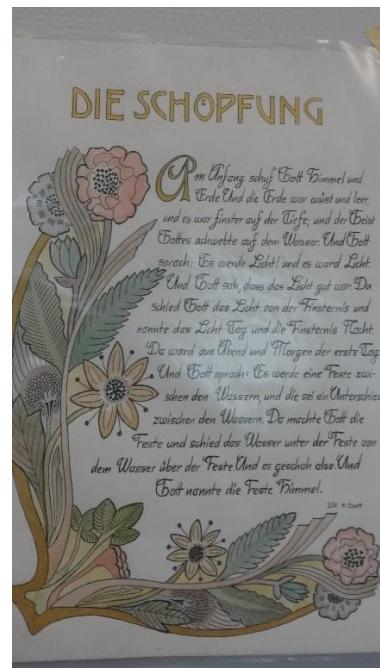 DIE SCHÖPFUNG
Am Anfang schuf Gott Himmel und
Erde. Und die Erde war wüst und leer,
und es war finster auf der Tiefe; und der Geist
Gottes schwebte auf dem Wasser. Und Gott
sprach: Es werde Licht! und es ward Licht.
Und Gott sah, dass das Licht gut war. Da
schied Gott das Licht von der Finsternis und
nannte das Licht Tag und die Finsternis Nacht.
Da ward aus Abend und Morgen der erste Tag.
Und Gott sprach: Es werde eine Feste zwi-
schen den Wassern, und die sei ein Unterschied
zwischen den Wassern. Da machte Gott die
Feste und schied das Wasser unter der Feste von
dem Wasser über der Feste. Und es geschah also. Und
Gott nannte die Feste Himmel.